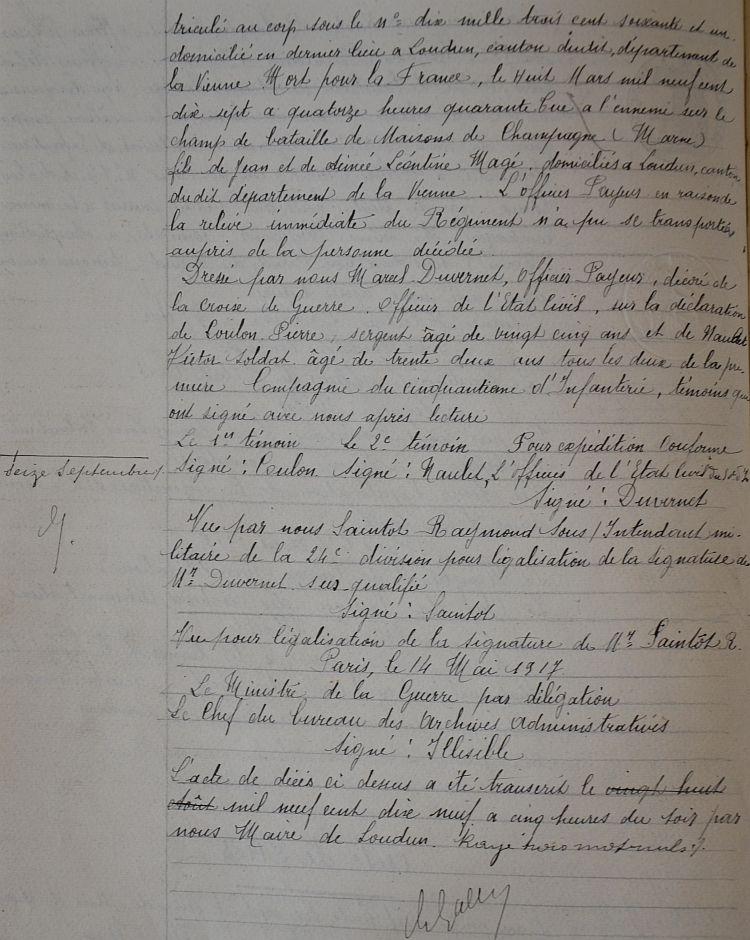 triculé au corp sous le n° dix mille trois cent soixante et un
domicilié en dernier lieu a Loudun, canton dudit, département de
la Vienne Mort pour la France, le Huit Mars mil neuf cent
dix sept a quatorze heures quarante Tué a l'ennemi sur le
champ de bataille de Maisons de Champagne (Marne)
fils de Jean et de Aimée Léontine Magé, domiciliés a Loudun, canton
dudit département de la Vienne. L'Officier Payeur en raison de
la relève immédiate du Régiment n'a peu se transporter
aupris de la personne décédée
Dressé par nous Marcel Duvernet, Officier Payeur, décoré de
la Croix de Guerre. Officier de l'Etat Civil, sur la déclaration
de Coulon Pierre, sergent âgé de vingt cinq ans et de Naulet
Victor Soldat âgé de trente deux ans tous les deux de la pre-
mière Compagnie du cinquantieme d'Infanterie, témoins qui
ont signé avec nous après lecture
Le 1er témoin Le 2e témoin Pour expédition Conforme
Signé : Coulon Signé : Naulet, L'Officier de l'Etat Civil
Signé : Duvernet
Seize Septembre
Vu par nous Saintot Raymond Sous/Intendant mi-
litaire de la 24e division pour légalisation de la signature de
Mr Duvernet sus-qualifié
Signé : Saintot
Vu pour légalisation de la signature de Mr Saintot R.
Paris, le 14 Mai 1917
Le Ministre de la Guerre par délégation
Le Chef du bureau des Archives Administratives
Signé : Illisible
L'acte de décès ci dessus a été transcrit le vingt huit
Août mil neuf cent dix neuf a cinq heures du soir par
nous Maire de Loudun. Rayé trois mots nuls